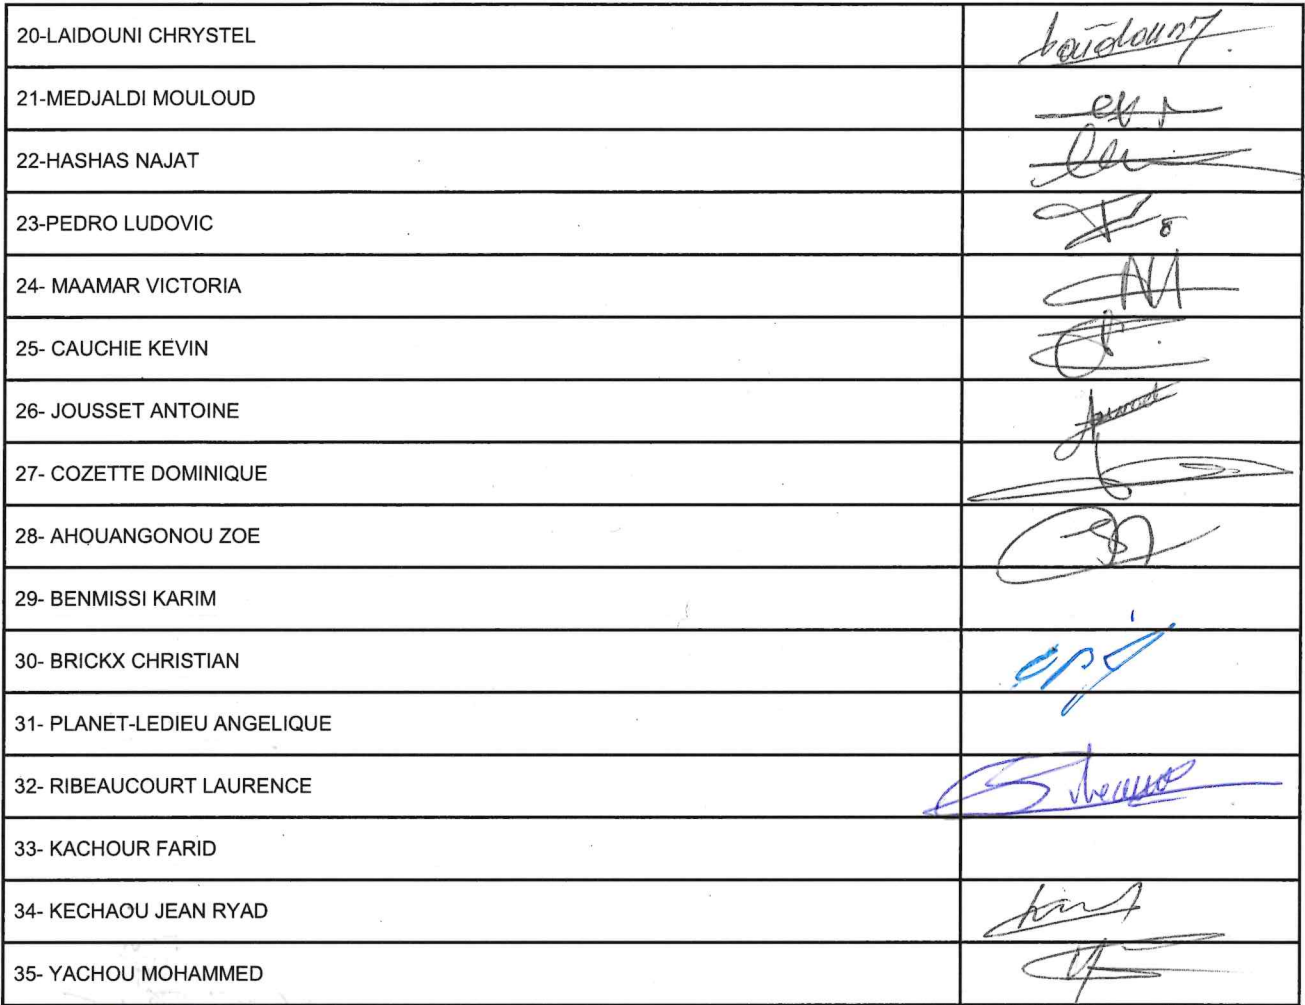 20-LAIDOUNI CHRYSTEL
21-MEDJALDI MOULOUD
22-HASHAS NAJAT
23-PEDRO LUDOVIC
24- MAAMAR VICTORIA
25- CAUCHIE KEVIN
26- JOUSSET ANTOINE
27- COZETTE DOMINIQUE
28- AHOUANGONOU ZOE
29- BENMISSI KARIM
30- BRICKX CHRISTIAN
31- PLANET-LEDIEU ANGELIQUE
32- RIBEAUCOURT LAURENCE
33- KACHOUR FARID
34- KECHAOU JEAN RYAD
35- YACHOU MOHAMMED